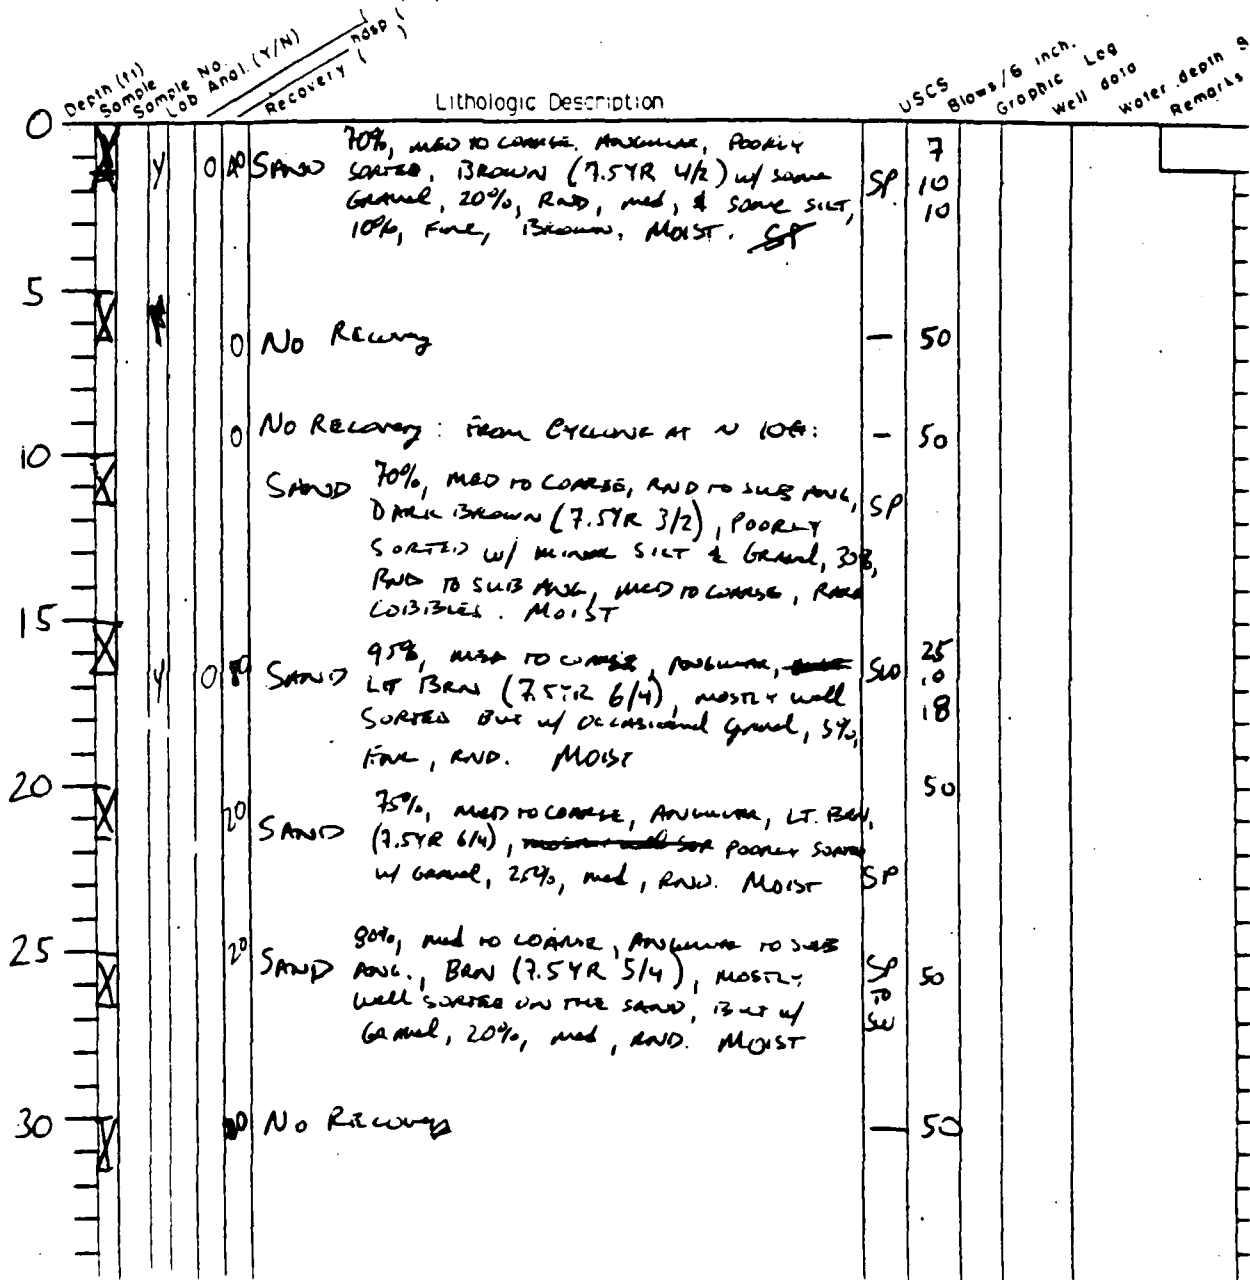 Depth (ft)
Sample
Sample No.
Lab Anal. (Y/N)
Recovery (
Lithologic Description
USCS
Blows/6 inch.
Graphic Log
Well data
Water depth
Remarks
0
Y 0 40 SAND 70%, MED TO COARSE, ANGULAR, POORLY 7
SORTED, BROWN (7.5YR 4/2) w/ some SP 10
Gravel, 20%, RND, med, & some SILT, 10
10%, Fine, Brown. MOIST. SP
5
0 No Recovery — 50
0 No Recovery: FROM CYCLONE AT ~ 10ft: - 50
10
SAND 70%, MED TO COARSE, RND TO SUB ANG, SP
DARK BROWN (7.5YR 3/2), POORLY
SORTED w/ MINOR SILT & Gravel, 30%,
RND TO SUB ANG, MED TO COARSE, RARE
COBBLES. MOIST
15
Y 0 SAND 95%, MED TO COARSE, ANGULAR, SW 25
LT BRN (7.5YR 6/4), MOSTLY well 10
SORTED BUT w/ OCCASIONAL Gravel, 5%, 18
Fine, RND. MOIST
20 50
20 SAND 75%, MED TO COARSE, ANGULAR, LT. BRN,
(7.5YR 6/4), mostly well sor POORLY SORTED
w/ Gravel, 25%, med, RND. MOIST SP
25
20 SAND 80%, med TO COARSE, ANGULAR TO SUB SP 50
ANG., BRN (7.5YR 5/4), MOSTLY TO
well SORTED ON THE SAND, BUT w/ SW
Gravel, 20%, med, RND. MOIST
30 No Recovery — 50